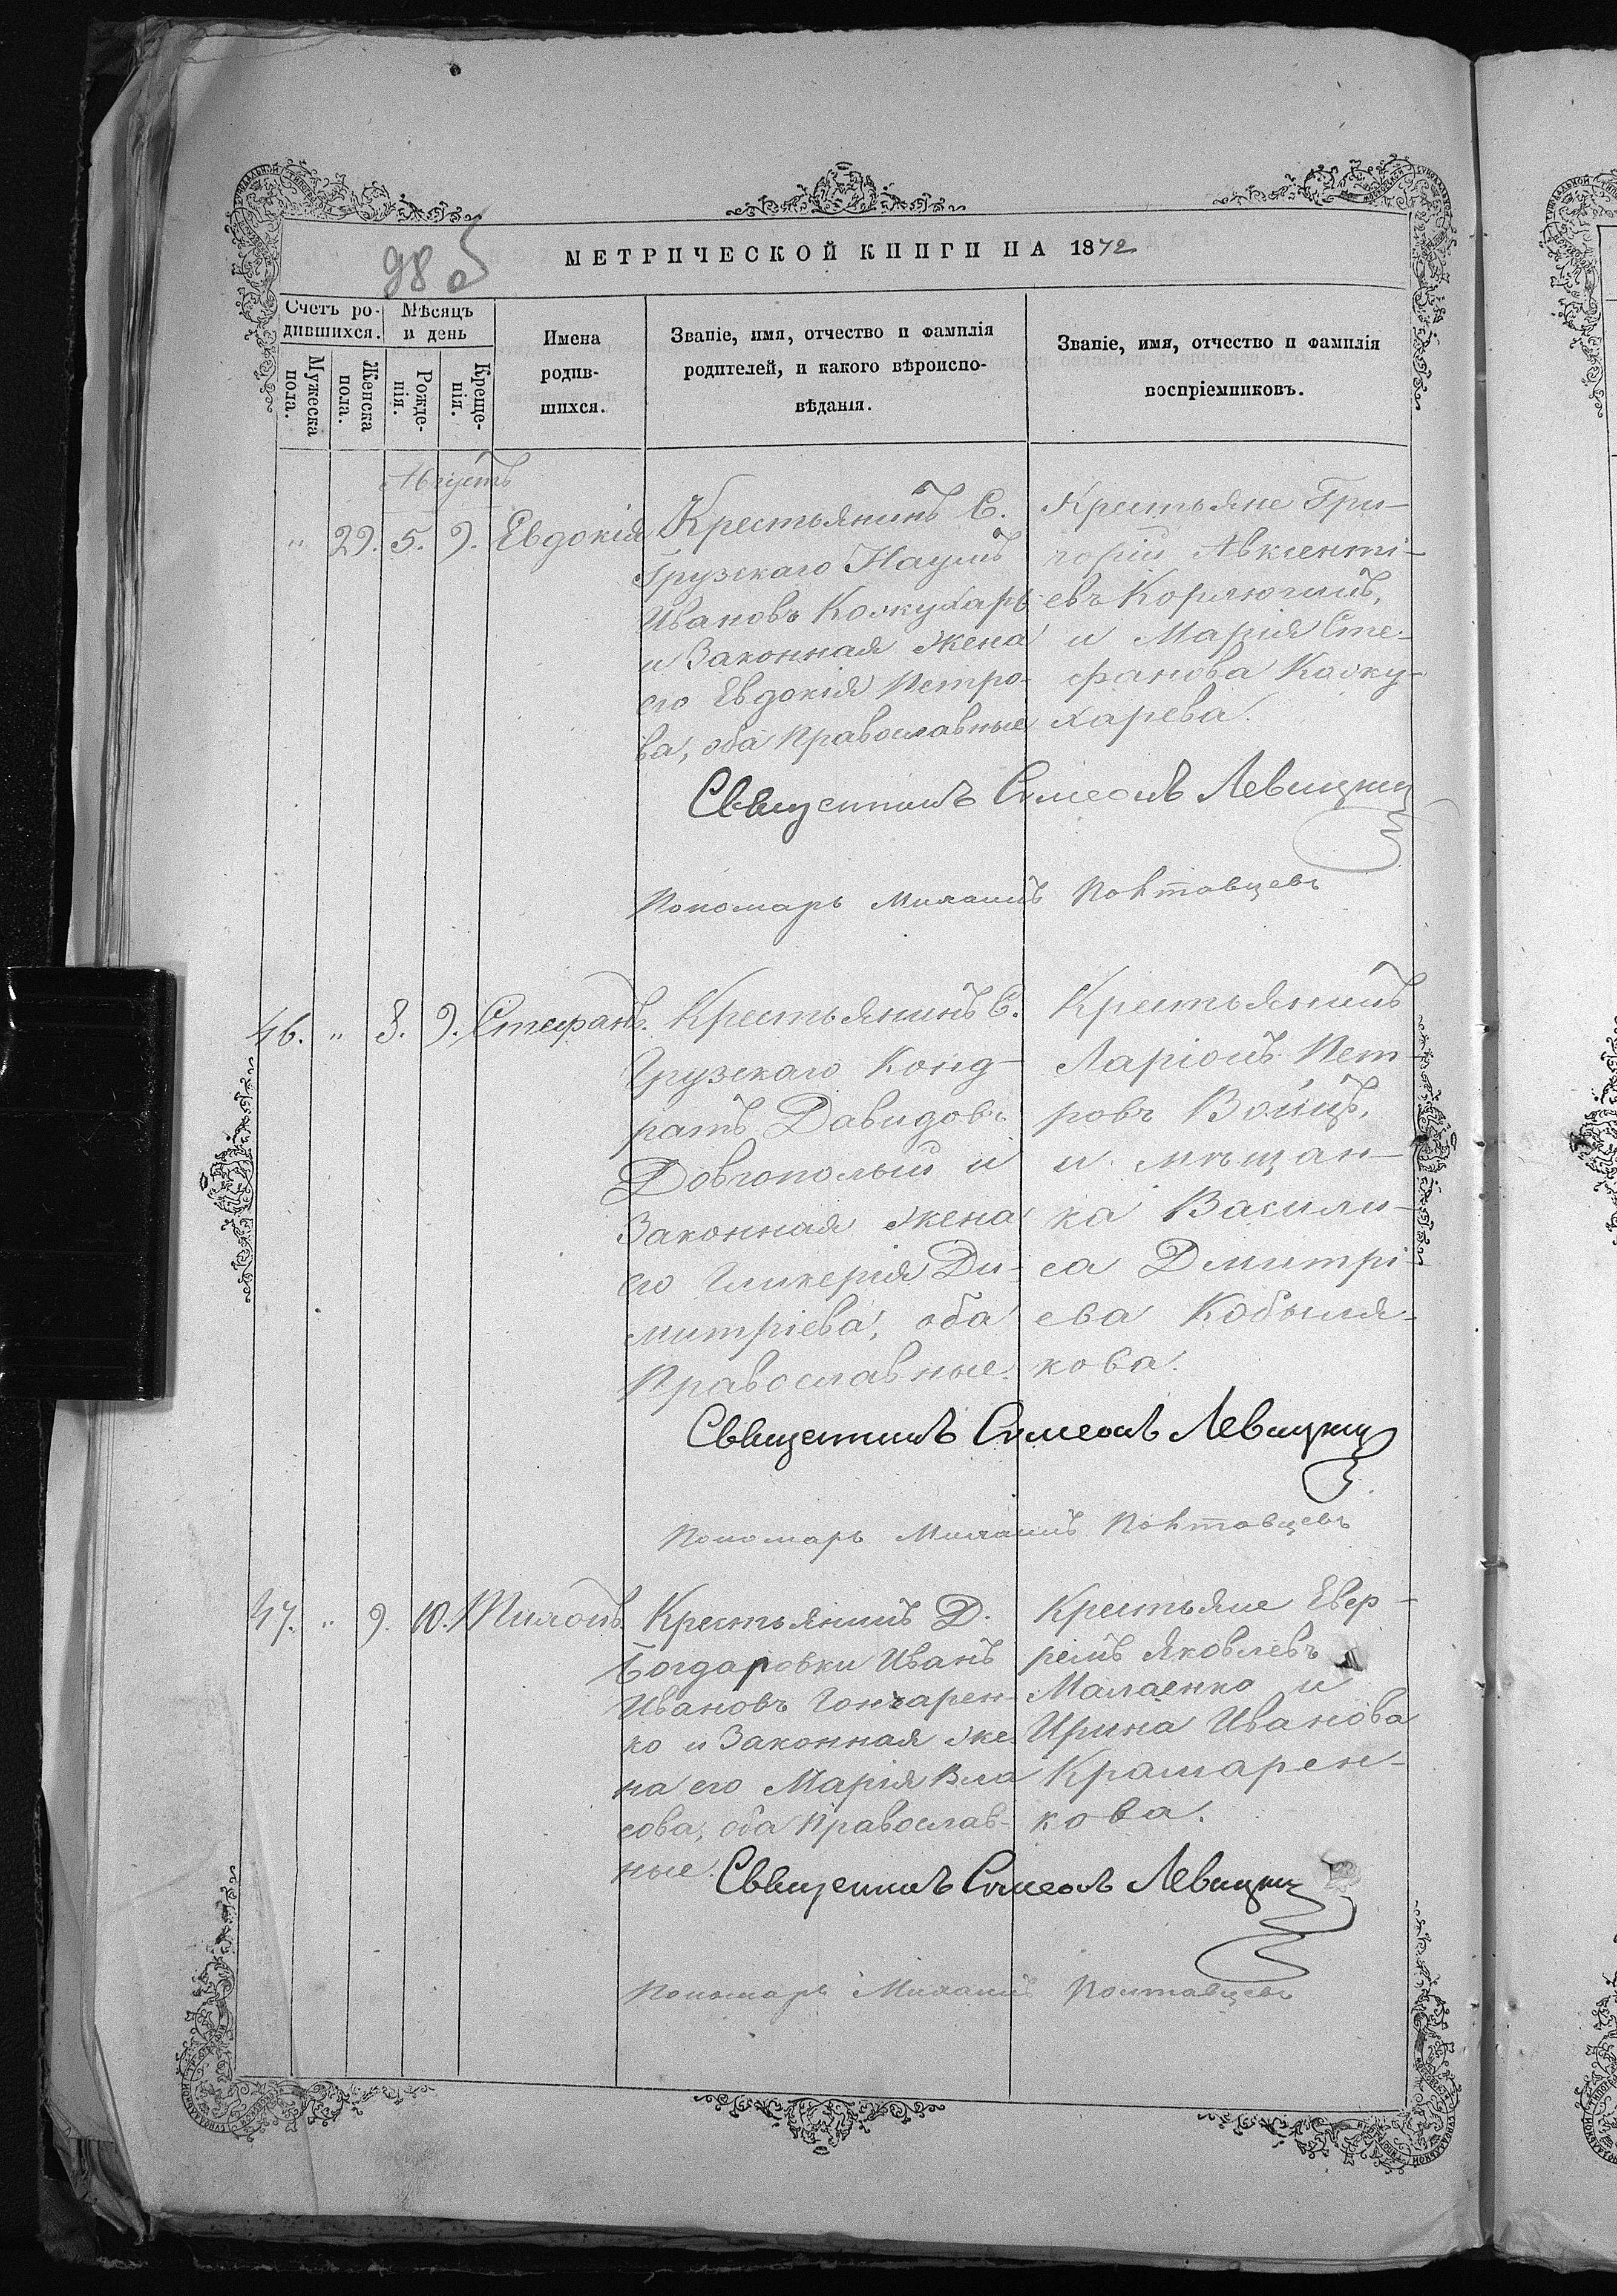 98 об
МЕТРИЧЕСКОЙ КНИГИ НА 1872
Счетъ ро-
дившихся.
Мѣсяцъ
и день
Имена
родив-
шихся.
Званіе, имя, отчество и фамилія
родителей, и какого вѣроиспо-
вѣданія.
Званіе, имя, отчество и фамилія
воспріемниковъ.
Мужеска
пола.
Женска
пола.
Рожде-
нія.
Креще-
нія.
Августъ
" 29. 5. 9. Евдокія
Крестьянинъ С.
Грузскаго Наумъ
Ивановъ Кожухарь
и Законная жена
его Евдокія Петро-
ва, оба Православные
Крестьяне Гри-
горій Авксенті-
евъ
и Марія Сте-
фанова Кожу-
харева.
Священникъ Симеонъ Левицкій
Пономарь Михаилъ Полтавцевъ
46. " 8. 9. Стефанъ.
Крестьянинъ С.
Грузскаго Конд-
ратъ Давидовъ
Довгополый и
Законная жена
его Гликерія Ди-
митріева, оба
Православные.
Крестьянинъ
Ларіонъ Пет-
ровъ
и мѣщан-
ка Васили-
са Дмитрі-
ева Кобыля-
кова.
Священникъ Симеонъ Левицкій
Пономарь Михаилъ Полтавцевъ
47. " 9. 10.
Крестьянинъ Д.
Богдаровки Иванъ
Ивановъ Гончарен-
ко и Законная же
на его Марія Вла
сова, оба Православ-
ные.
Крестьяне Евф-
ремъ Яковлевъ
Малаенко и
Ирина Иванова
Крамарен-
кова.
Священникъ Симеонъ Левицкій
Пономарь Михаилъ Полтавцевъ